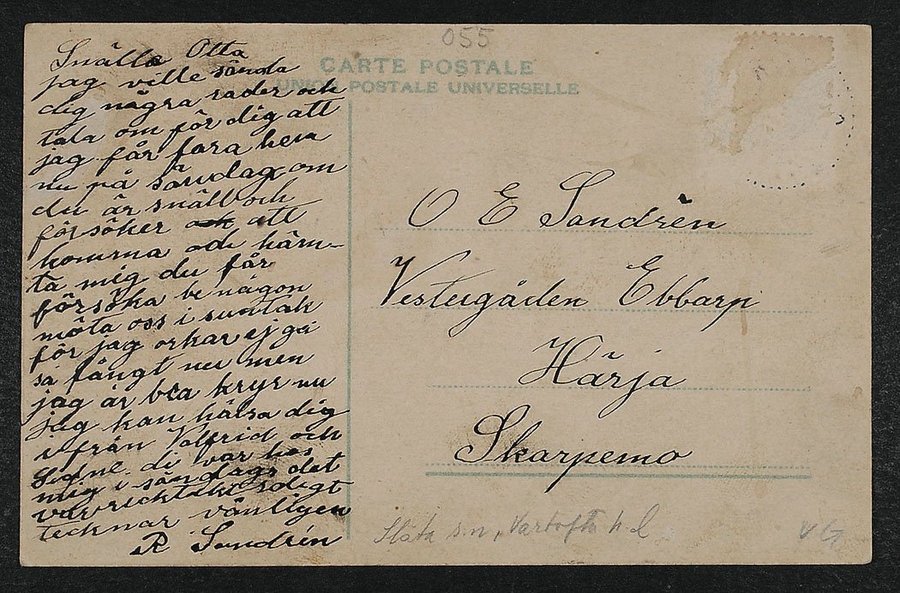 055
CARTE POSTALE
UNION POSTALE UNIVERSELLE
Snälla Otta
jag ville sända
dig några rader och
tala om för dig att
jag får fara hem
nu på söndag om
du är snäll och
försöker och att
komma och häm-
ta mig du får
försöka be någon
möta oss i suntak
för jag orkar ej gå
så långt nu men
jag är bra kryr nu
jag kan hälsa dig
ifrån Valfrid och
Signe di var hos
mig i söndags det
var ricktikt roligt
tecknar vänligen
R Sandrén
O E Sandrén
Vestergården Ebbarp
Härja
Skarpemo
Släta s:n, Vartofta h.d
VG